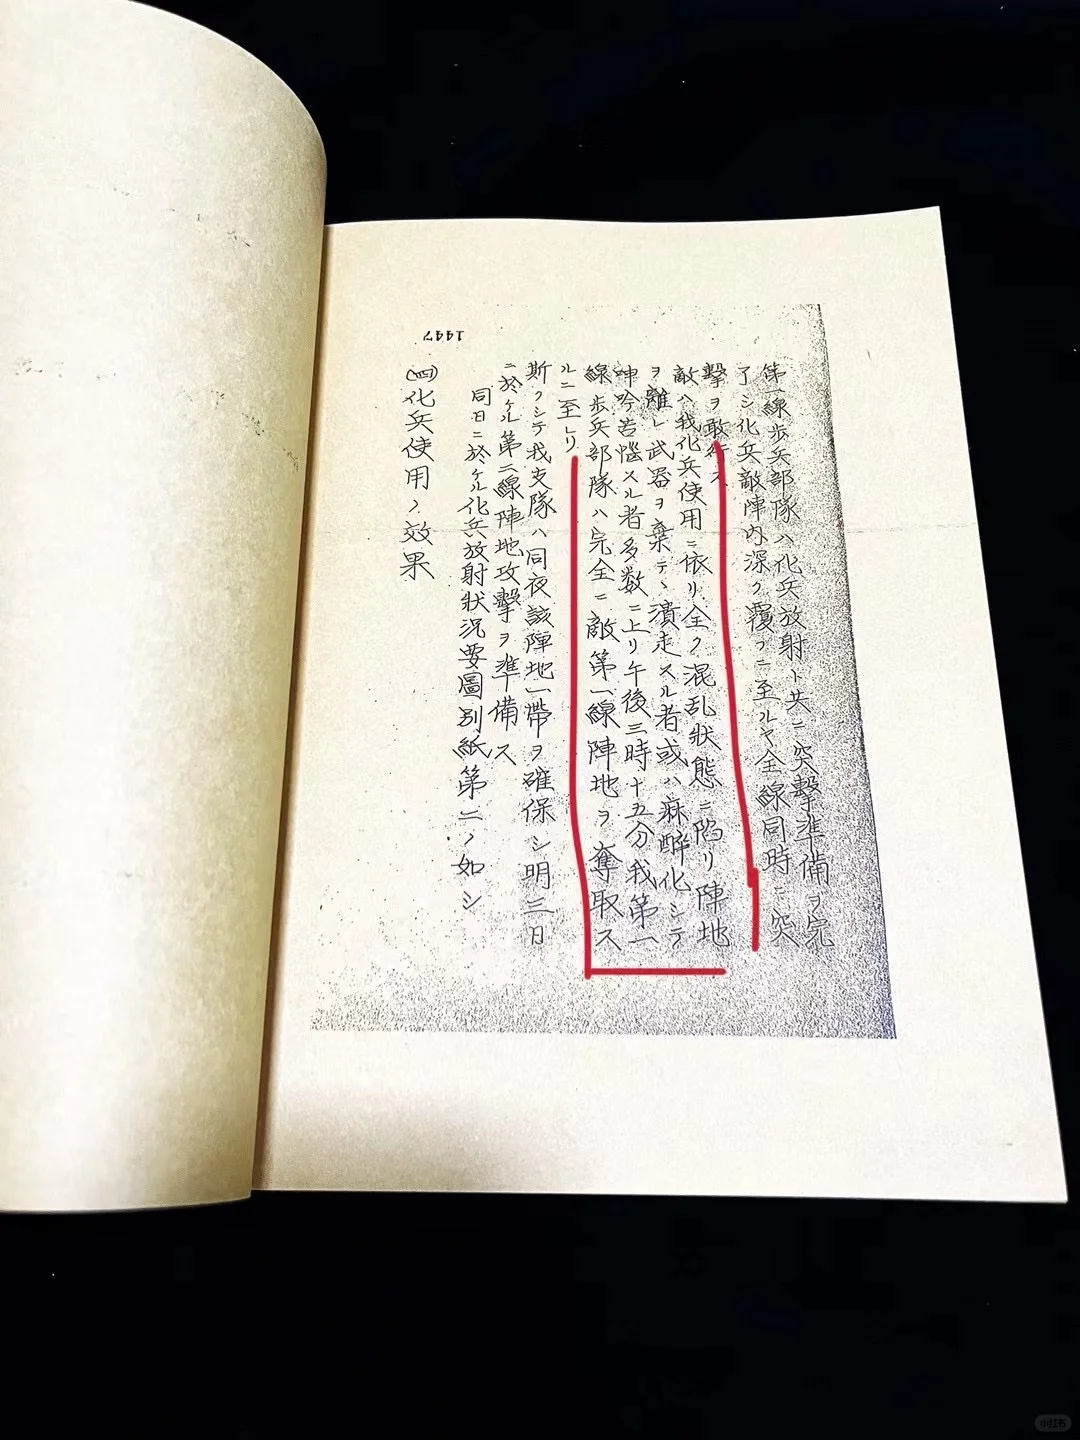 1447
第一線歩兵部隊ハ化兵放射ト共ニ突撃準備ヲ完
了シ化兵敵陣内深ク覆フニ至ルヤ全線同時ニ突
撃ヲ敢行ス
敵ハ我化兵使用ニ依リ全ク混乱狀態ニ陷リ陣地
ヲ離レ武器ヲ棄テヽ潰走スル者或ハ麻醉化シテ
呻吟苦惱スル者多数ニ上リ午後三時十五分我第一
線歩兵部隊ハ完全ニ敵第一線陣地ヲ奪取ス
ルニ至レリ
斯クシテ我支隊ハ同夜該陣地一帶ヲ確保シ明三日
ニ於ケル第二線陣地攻撃ヲ準備ス
同日ニ於ケル化兵放射狀況要圖別紙第二ノ如シ
(四)化兵使用ノ效果
小红书